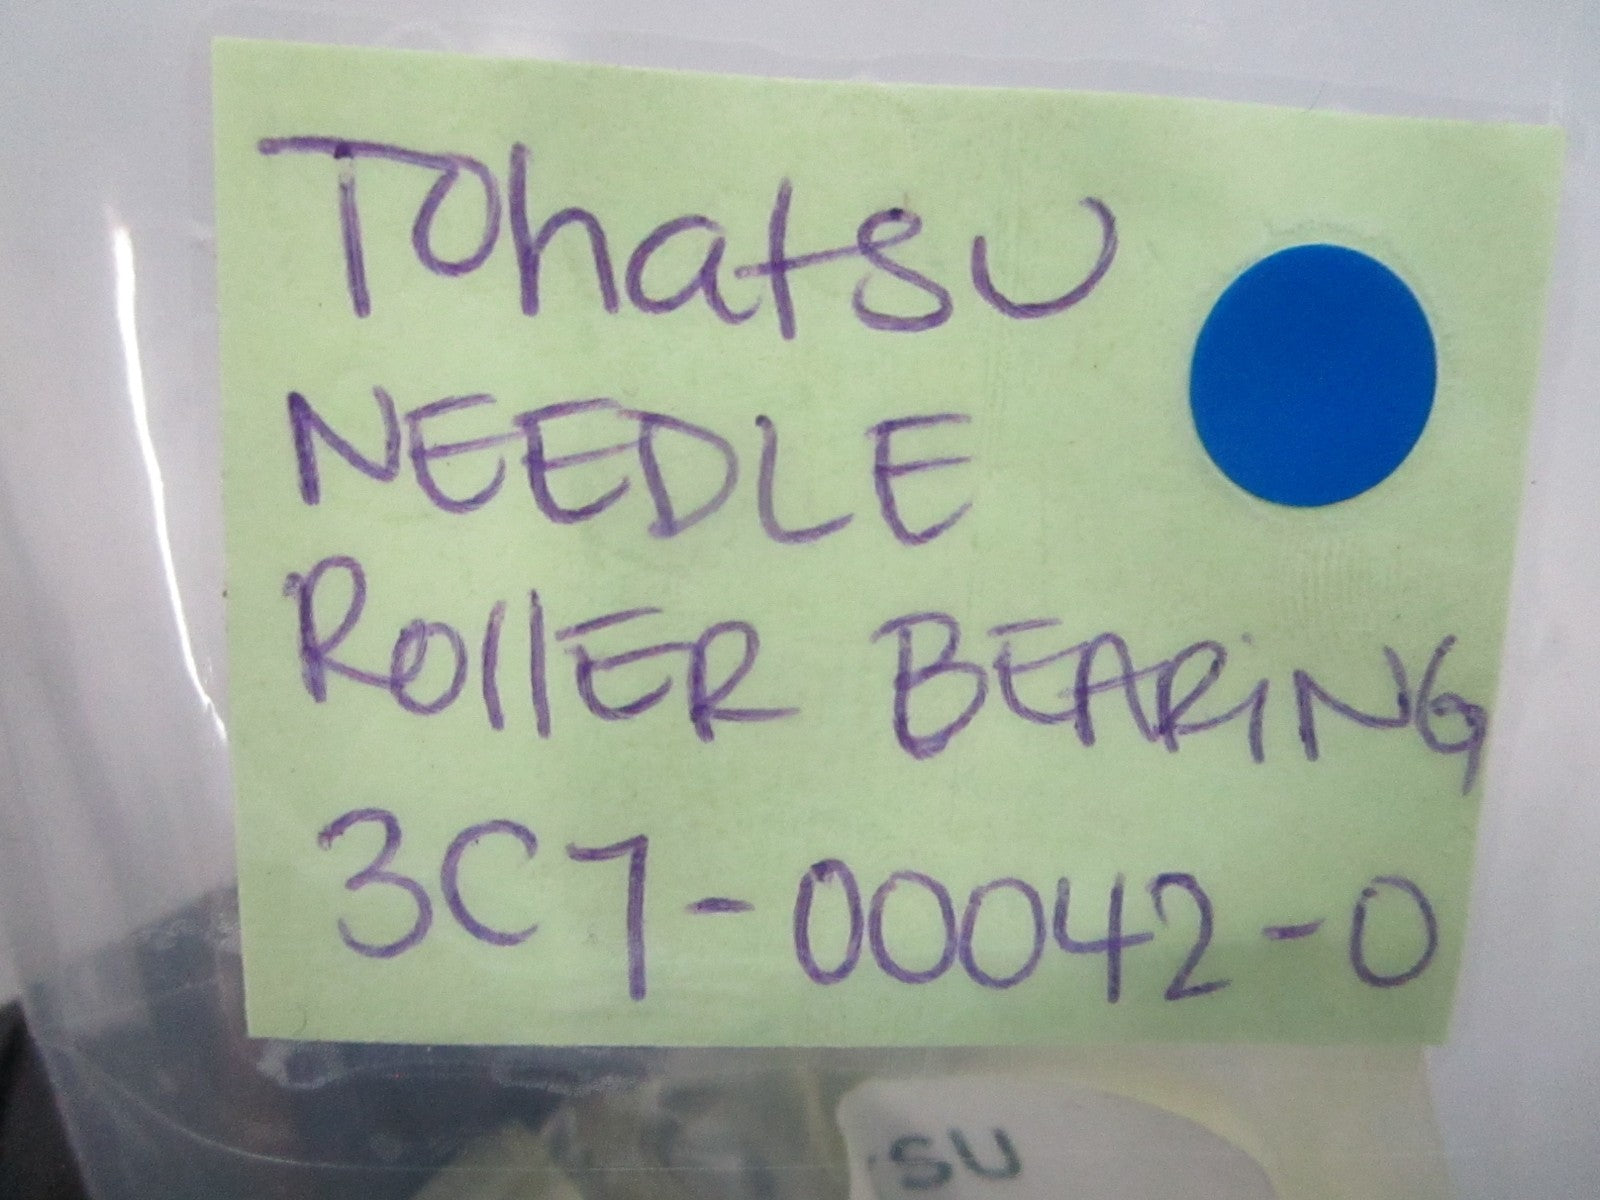 Tohatsu
NEEDLE
ROllER BEARiNG
3C7-00042-0
SU